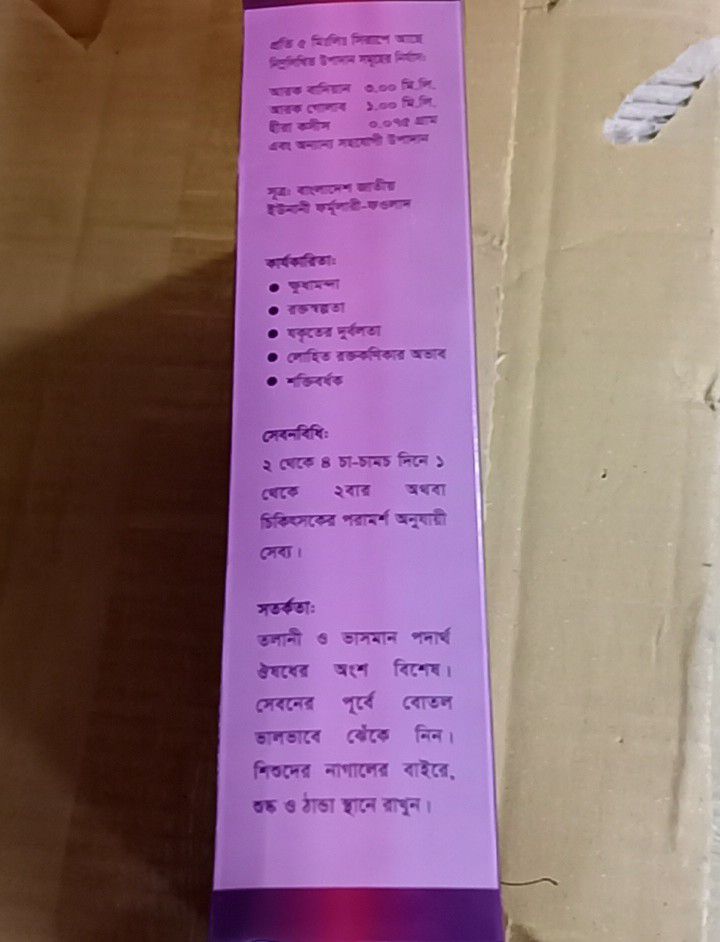 প্রতি ৫ মিঃলিঃ সিরাপে আছে
নিম্নলিখিত উপাদান সমূহের নির্যাস:
আরক বাদিয়ান ৩.০০ মি.লি.
আরক গোলাব ১.০০ মি.লি.
হীরা কসীস ০.০৭৫ গ্রাম
এবং অন্যান্য সহযোগী উপাদান
সূত্র: বাংলাদেশ জাতীয়
ইউনানী ফর্মুলারী-ফওলাদ
কার্যকারিতা:
● ক্ষুধামন্দা
● রক্তস্বল্পতা
● যকৃতের দূর্বলতা
● লোহিত রক্তকণিকার অভাব
● শক্তিবর্ধক
সেবনবিধি:
২ থেকে ৪ চা-চামচ দিনে ১
থেকে ২বার অথবা
চিকিৎসকের পরামর্শ অনুযায়ী
সেব্য।
সতর্কতা:
তলানী ও ভাসমান পদার্থ
ঔষধের অংশ বিশেষ।
সেবনের পূর্বে বোতল
ভালভাবে ঝেঁকে নিন।
শিশুদের নাগালের বাইরে,
শুষ্ক ও ঠান্ডা স্থানে রাখুন।